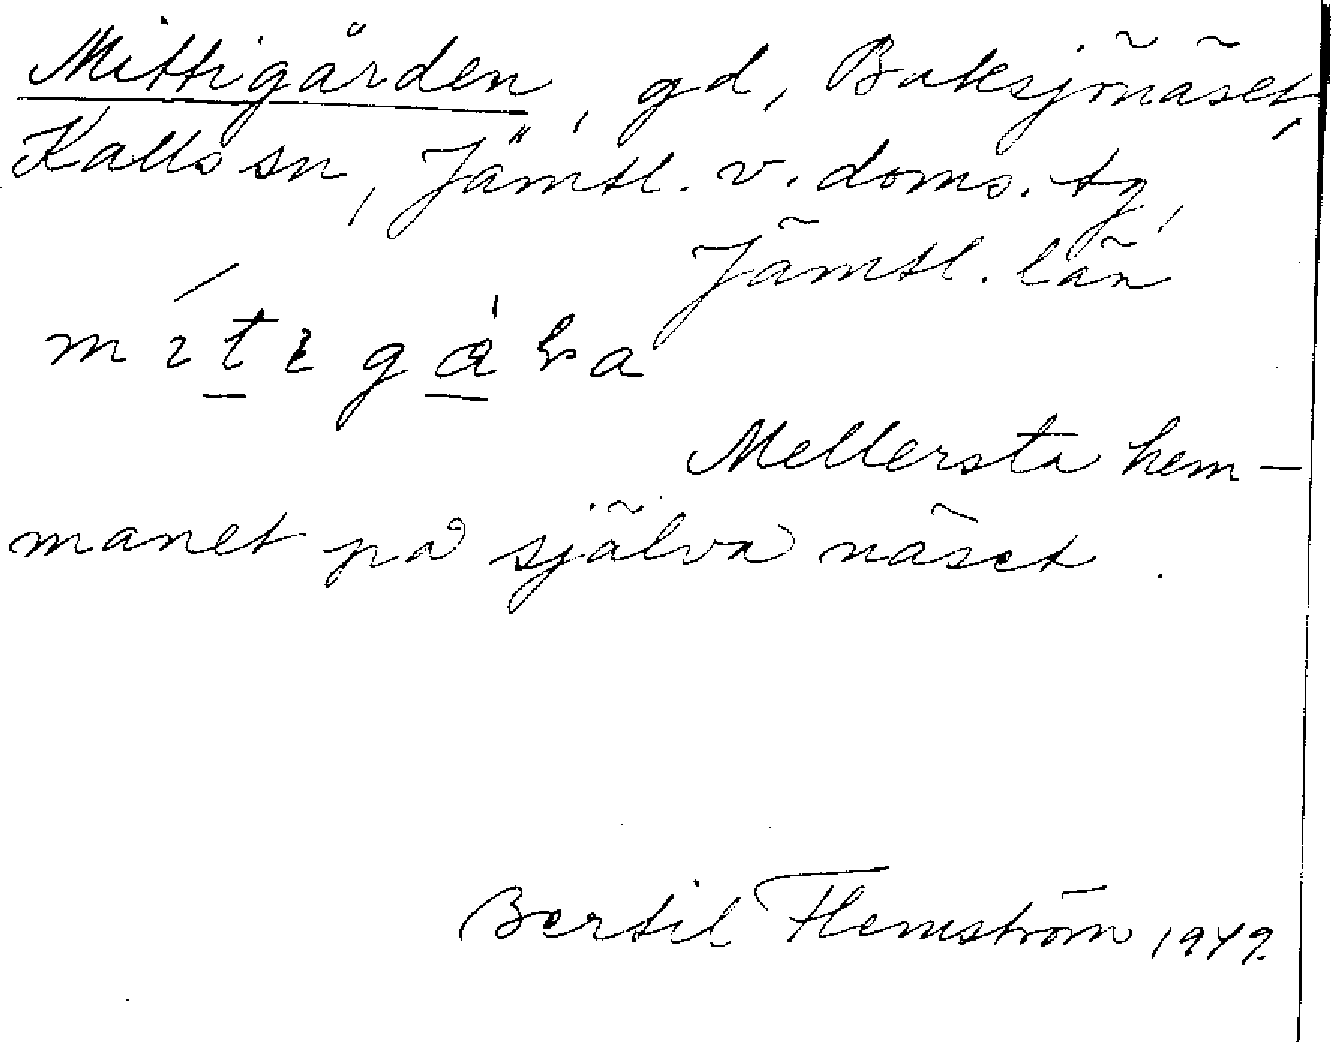 Mittigården, gd, Baksjönäset,
Kalls sn, Jämtl. v. doms. tg,
Jämtl. län
Mellersta hem-
manet på själva näset.
Bertil Flemström 1949.